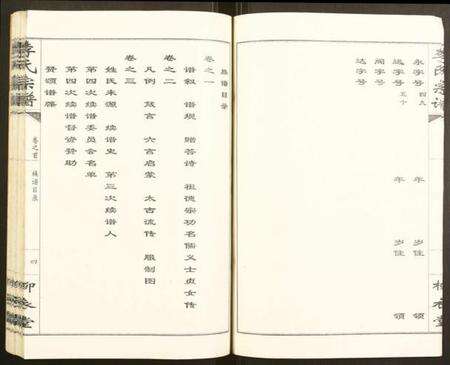 永字号 四九 年 岁住 领
远字号 五十 年 岁住 领
阁字号
达字号
族谱目录
卷之一
谱叙 谱规 赠答诗 祖德宗功名儒义士贞女传
卷之二
凡例 箴言 六言启蒙 太古流传 服制图
卷之三
姓氏来源 续谱史 第三次续谱人
第四次续谱委员会名单
第四次续谱督资赞助
赞颂谱牒
氏宗谱
卷之首 族谱目录 四
堂